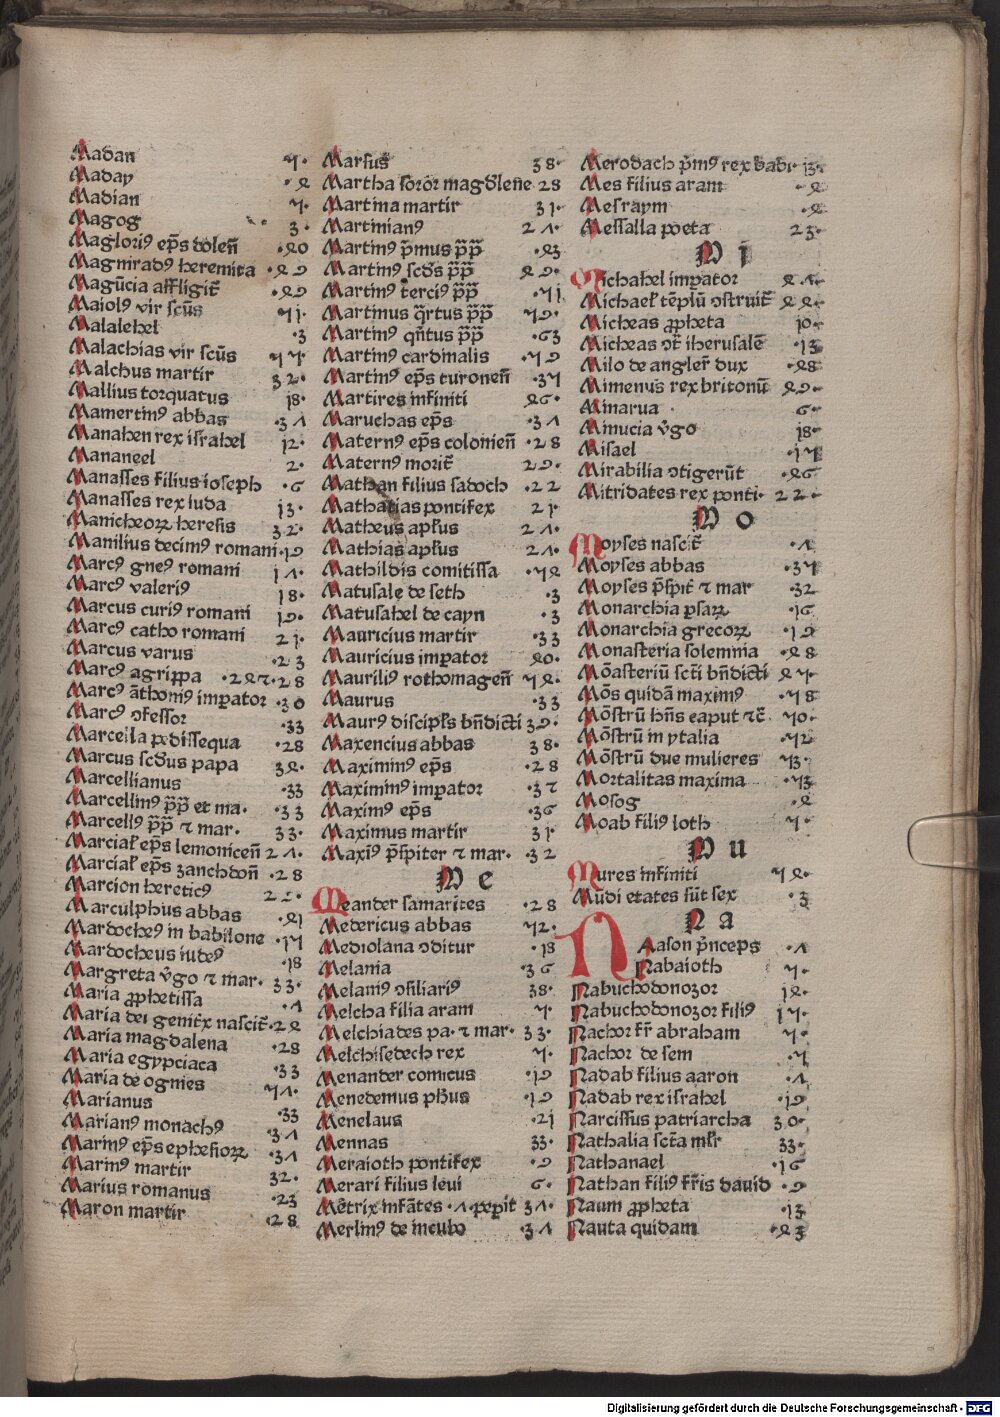 Madan 7.
Maday .2
Madian 7.
Magog 3.
Magloriꝰ ep̄s dolen̄ .40
Magniradꝰ heremita .49
Magūcia affligit̄ .49
Maiolꝰ vir scūs 71.
Malalehel .3
Malachias vir scūs 77
Malchus martir 32.
Mallius torquatus 18.
Mamertinꝰ abbas .31
Manahen rex israhel 12.
Mananeel 2.
Manasses filius ioseph .6
Manasses rex iuda 13.
Manicheoꝝ heresis 32.
Manilius decimꝰ romani .19
Marcꝰ gneꝰ romani 11.
Marcꝰ valeriꝰ 18.
Marcus curiꝰ romani 19.
Marcꝰ catho romani 21.
Marcus varus .23
Marcꝰ agrippa .24 ⁊ .28
Marcꝰ āthoniꝰ imꝑator .30
Marcꝰ ꝯfessor .33
Marcella pedissequa .28
Marcus scd̄us papa 34.
Marcellianus .33
Marcellinꝰ p̄p̄ et ma. .33
Marcellꝰ p̄p̄ ⁊ mar. 33.
Marciał ep̄s lemonicen̄ 21.
Marciał ep̄s zanchdon̄ .28
Marcion hereticꝰ 22.
Marculphus abbas .41
Mardocheꝰ in babilone .17
Mardocheus iudeꝰ .18
Margreta v̄go ⁊ mar. 33.
Maria ꝓphetissa .1
Maria dei genit̄x nascit̄ .24
Maria magdalena .28
Maria egypciaca .33
Maria de ognies 71.
Marianus .33
Marianꝰ monachꝰ .31
Marinꝰ ep̄s ephesioꝝ .31
Marinꝰ martir 32.
Marius romanus .23
Maron martir .28
Marsus 38.
Martha soror magd̄lene 28
Martina martir 31.
Martinianꝰ 21.
Martinꝰ p̄mus p̄p̄ .43
Martinꝰ scd̄s p̄p̄ 49.
Martinꝰ terciꝰ p̄p̄ .71
Martinus q̄rtus p̄p̄ 79.
Martinꝰ qn̄tus p̄p̄ .63
Martinꝰ cardinalis .79
Martinꝰ ep̄s turonen̄ .37
Martires infiniti 46.
Maruchas ep̄s .31
Maternꝰ ep̄s colonien̄ .28
Maternꝰ morit̄ 29.
Mathan filius sadoch .22
Mathatias pontifex 21.
Matheus apł̄us 21.
Mathias apł̄us 21.
Mathildis comitissa .74
Matusale de seth .3
Matusahel de cayn .3
Mauricius martir .33
Mauricius imꝑator 40.
Mauriliꝰ rothomagen̄ 74.
Maurus .33
Maurꝰ discipł̄s bn̄dicti 39.
Maxencius abbas 38.
Maximinꝰ ep̄s .28
Maximinꝰ imꝑator .32
Maximꝰ ep̄s .36
Maximus martir 31.
Maxiꝰ p̄sp̄iter ⁊ mar. .32
M e
Meander samarites .28
Medericus abbas 72.
Mediolana ꝯditur .18
Melania .36
Melaniꝰ ꝯsiliariꝰ 38.
Melcha filia aram 7.
Melchiades pa. ⁊ mar. 33.
Melchisedech rex 7.
Menander comicus .19
Menedemus ph̄us .19
Menelaus .21
Mennas 33.
Meraioth pontifex .9
Merari filius leui 6.
Mēt̄rix infātes .1. peꝑit 31.
Merlinꝰ de incubo .31
Merodach p̄mꝰ rex babi. 13.
Mes filius aram .2
Mesraym .2
Messalla poeta 23.
M i
Michahel imꝑator 41.
Michael tēplū ꝯstruit̄ 44.
Micheas ꝓpheta 10.
Micheas ꝯt̄ iherusalē .13
Milo de angler̄ dux .48
Mimenus rex britonū 49.
Minarua 6.
Minucia v̄go 18.
Misael .17
Mirabilia ꝯtigerūt .46
Mitridates rex ponti. 22.
M o
Moyses nascit̄ .1
Moyses abbas .37
Moyses p̄sp̄it̄ ⁊ mar .32
Monarchia ꝑsaꝝ .16
Monarchia grecoꝝ .19
Monasteria solemnia .48
Mōasteriū sct̄i bn̄dicti 47.
Mōs quidā maximꝰ .78
Mōstrū hn̄s caput ⁊c̄ 70.
Mōstrū in ytalia .72
Mōstrū due mulieres 73.
Mortalitas maxima .73
Mosog .2
Moab filiꝰ loth 7.
M u
Mures infiniti 74.
Mūdi etates sūt sex .3
N a
Naason p̄nceps .1
Nabaioth 7.
Nabuchodonozor 14.
Nabuchodonozor filiꝰ 17.
Nachor fr̄ abraham 7.
Nachor de sem .7
Nadab filius aaron .1
Nadab rex israhel .19
Narcissus patriarcha 30.
Nathalia sct̄a mr̄ 33.
Nathanael .16
Nathan filiꝰ fr̄is dauid .9
Naum ꝓpheta .13
Nauta quidam .43
Digitalisierung gefördert durch die Deutsche Forschungsgemeinschaft - DFG